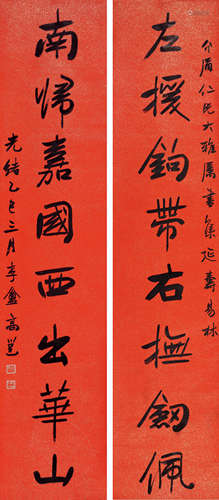 介眉仁兄大雅屬書集延壽易林
左援鉤帶右撫劔佩
南歸嘉國西出華山
光緒乙巳三月李盦高邕